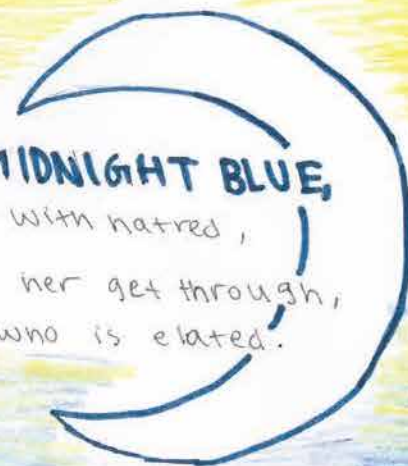 MIDNIGHT BLUE,
with hatred,
her get through,
who is elated.